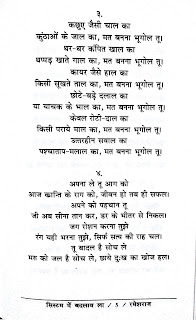 ३.
कछुए जैसी चाल का
कुंठाओं के जाल का, मत बनना भूगोल तू।
थर-थर कंपित खाल का
थप्पड़ खाते गाल का, मत बनना भूगोल तू।
कायर जैसे हाल का
किसी सूखते ताल का, मत बनना भूगोल तू।
छोटे-बड़े दलाल का
या याचक के भाल का, मत बनना भूगोल तू।
केवल रोटी-दाल का
किसी पराये माल का, मत बनना भूगोल तू।
उतरहीन सवाल का
पश्चाताप-मलाल का, मत बनना भूगोल तू।
४.
अपना ले तू आग को
आज क्रान्ति के राग को, जीवन हो तब ही सफल।
अपने को पहचान तू
जी अब सीना तान कर, डर के भीतर से निकल।
जग रोशन करना तुझे
रंग यही भरना तुझे, सिर्फ सत्य की राह चल।
तू बादल है सोच ले
मरु को जल है सोच ले, छाये दुःख का खोज हल।
सिस्टम में बदलाव ला / 5 / रमेशराज